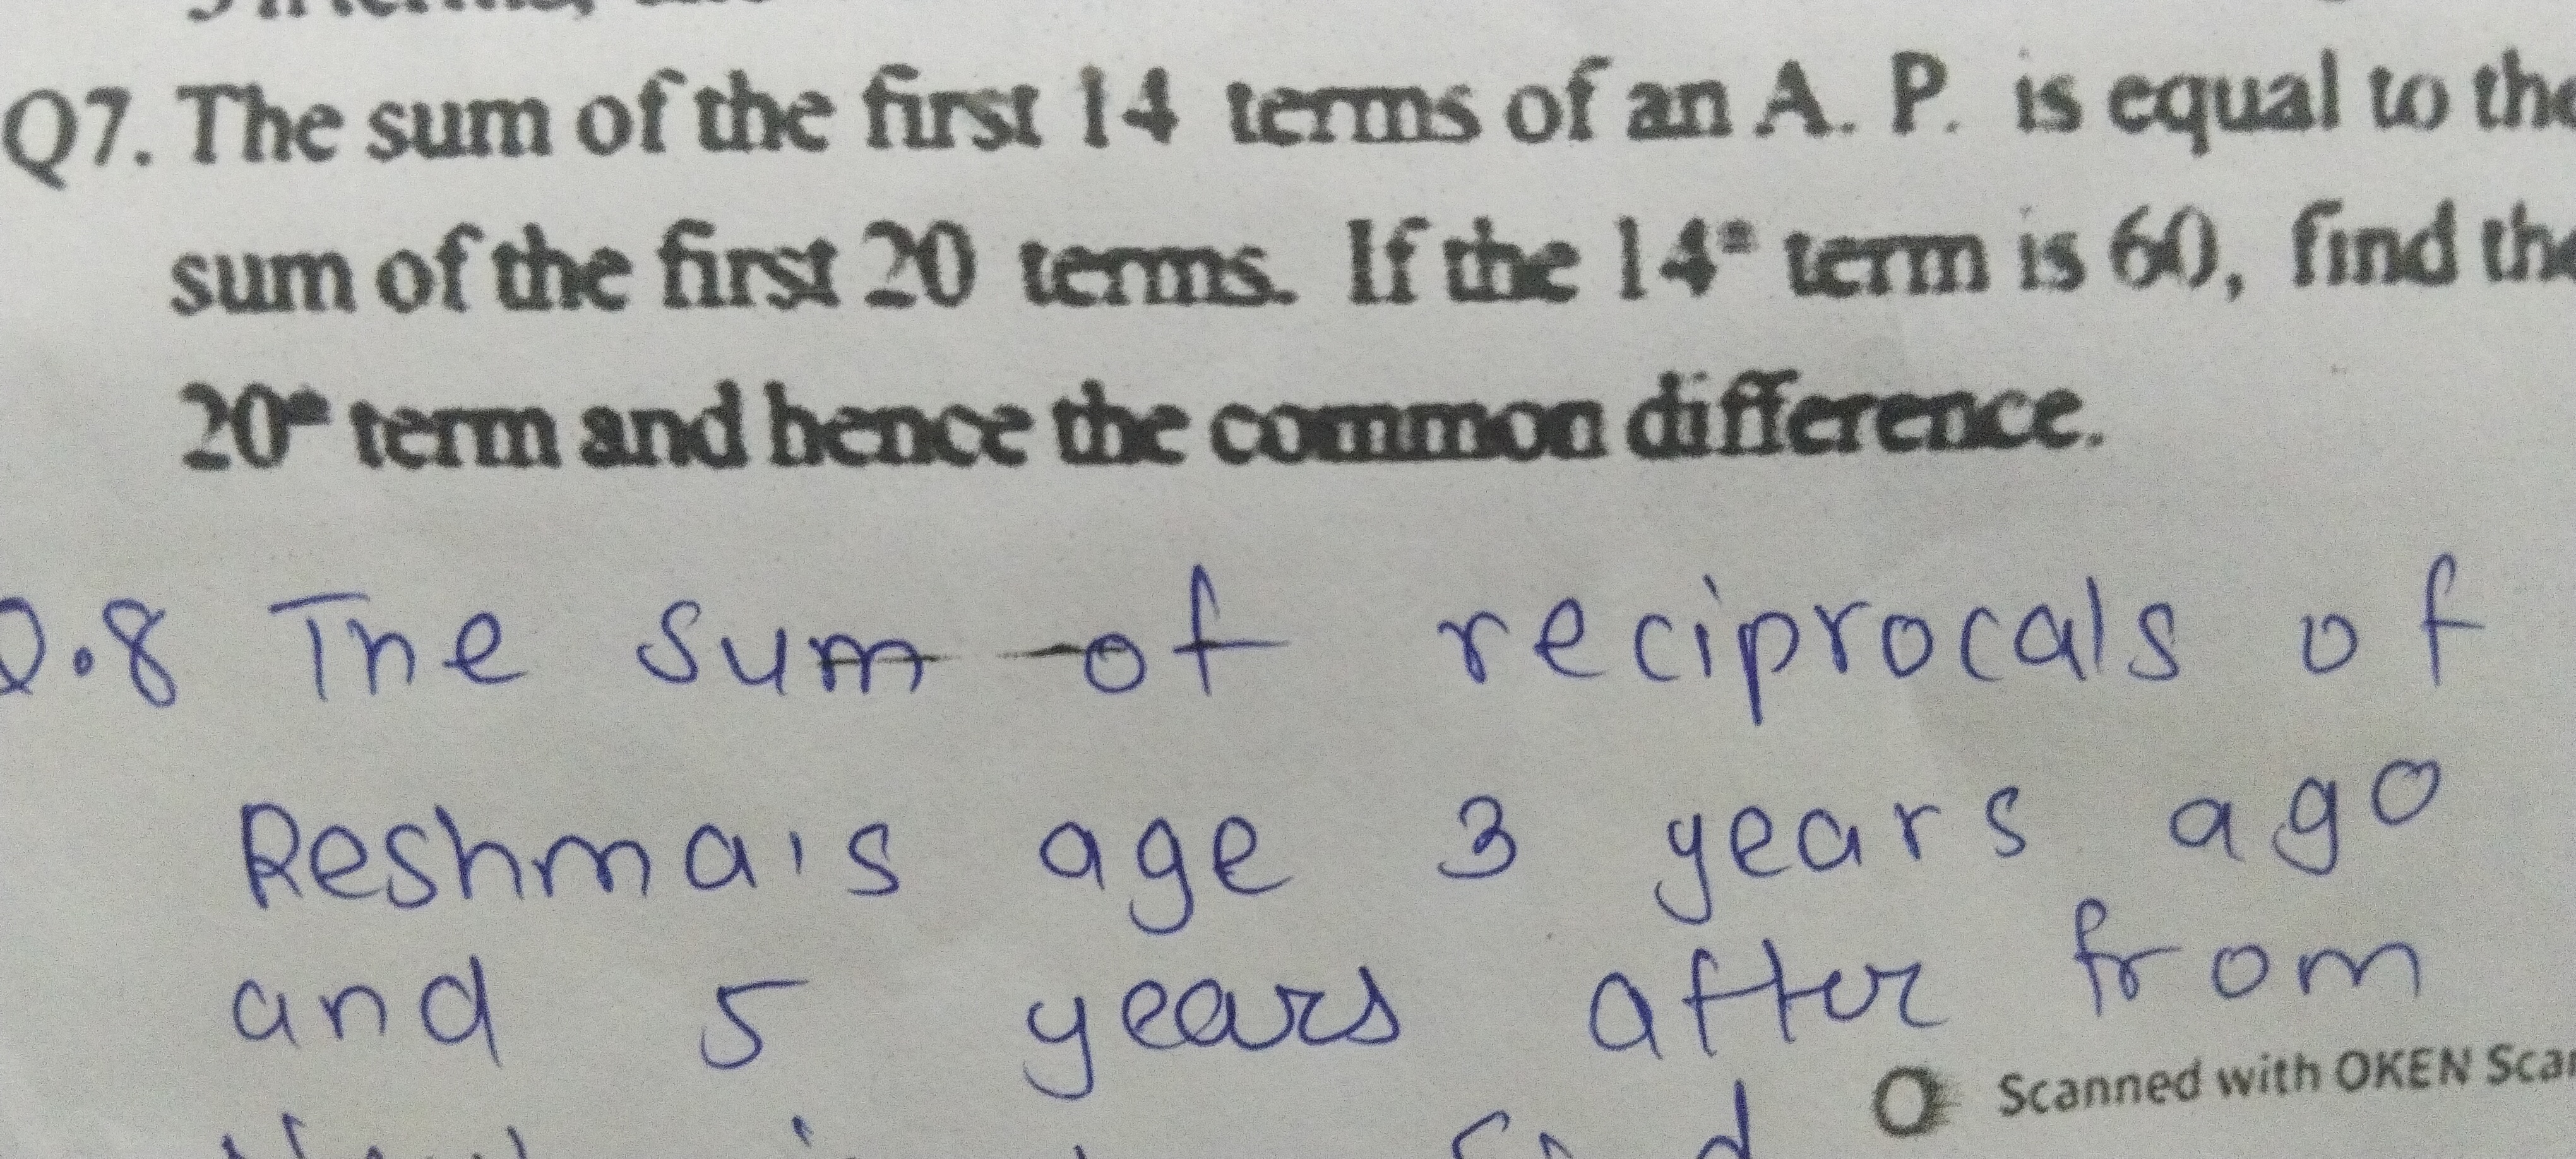 Q7. The sum of the first 14 terms of an A. P. is equal to the
sum of the first 20 terms. If the 14th term is 60, find the
20th term and hence the common difference.
Q.8 The sum of reciprocals of
Reshma's age 3 years ago
and 5 years after from
Scanned with OKEN